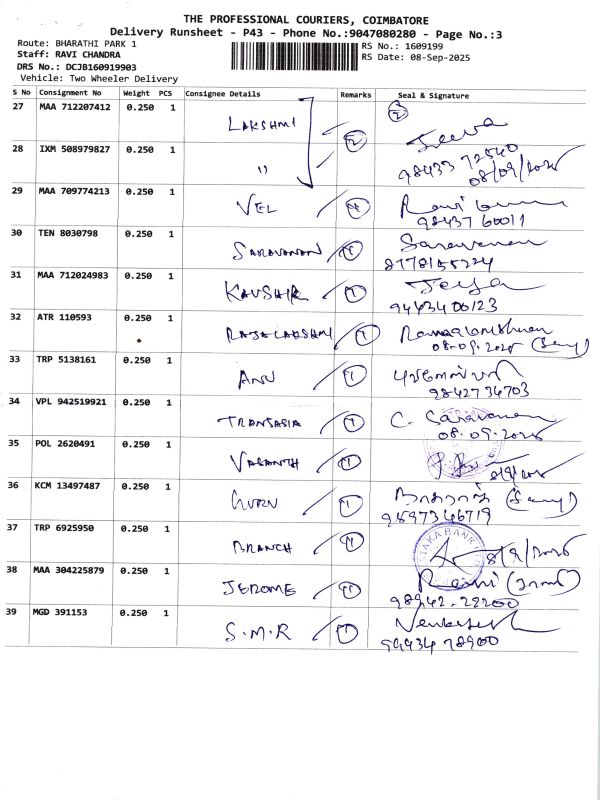 THE PROFESSIONAL COURIERS, COIMBATORE
Delivery Runsheet - P43 - Phone No.:9047080280 - Page No.:3
Route: BHARATHI PARK 1
RS No.: 1609199
Staff: RAVI CHANDRA
RS Date: 08-Sep-2025
DRS No.: DCJB160919903
Vehicle: Two Wheeler Delivery
S No Consignment No Weight PCS Consignee Details Remarks Seal & Signature
27 MAA 712207412 0.250 1 LAKSHMI 2 2 Jeeva
28 IXM 508979827 0.250 1 " 98433 72540
08/09/2025
29 MAA 709774213 0.250 1 VEL 1
98437 60011
30 TEN 8030798 0.250 1 SARAVANAN 1 Saravanan
8778155224
31 MAA 712024983 0.250 1 KAUSHIK 1 Jeya
94434 00123
32 ATR 110593 0.250 1 RAJALAKSHMI 1
08-09-2025
33 TRP 5138161 0.250 1 ANU 1
98427 34703
34 VPL 942519921 0.250 1 TRANSASIA 1 C. Saravanan
08.09.2025
35 POL 2620491 0.250 1 VASANTH 1
36 KCM 13497487 0.250 1 GURU 1
98973 46719
37 TRP 6925950 0.250 1 BRANCH 1 TAKA BANK 8/9/2025
38 MAA 304225879 0.250 1 JEROME 1
98942-22200
39 MGD 391153 0.250 1 S.M.R 1
99434 78900